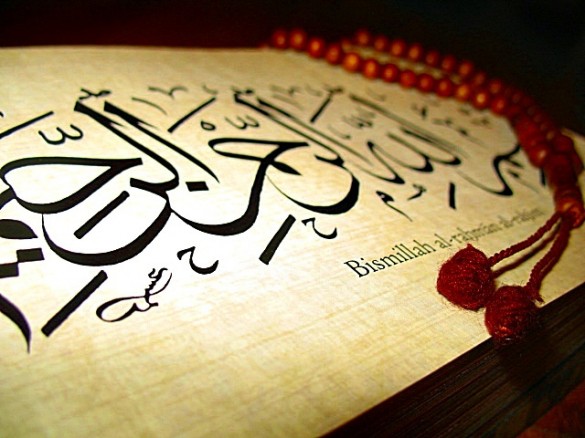 بسم الله الرحمن الرحيم
Bismillah al-rahman al-rahim